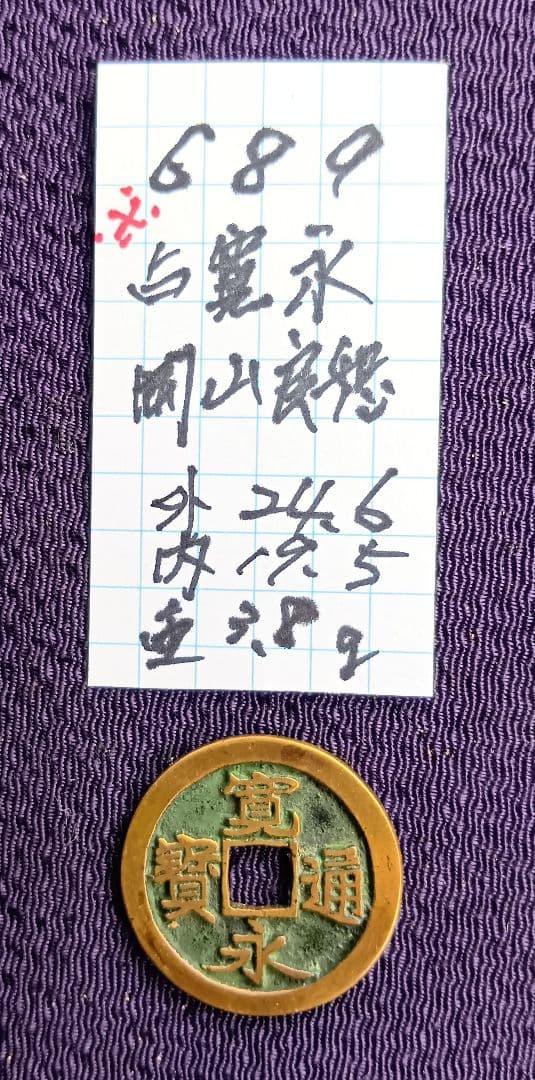 689
古寛永
岡山
外 24.6
内 19.5
重 3.8g
寛永通寳